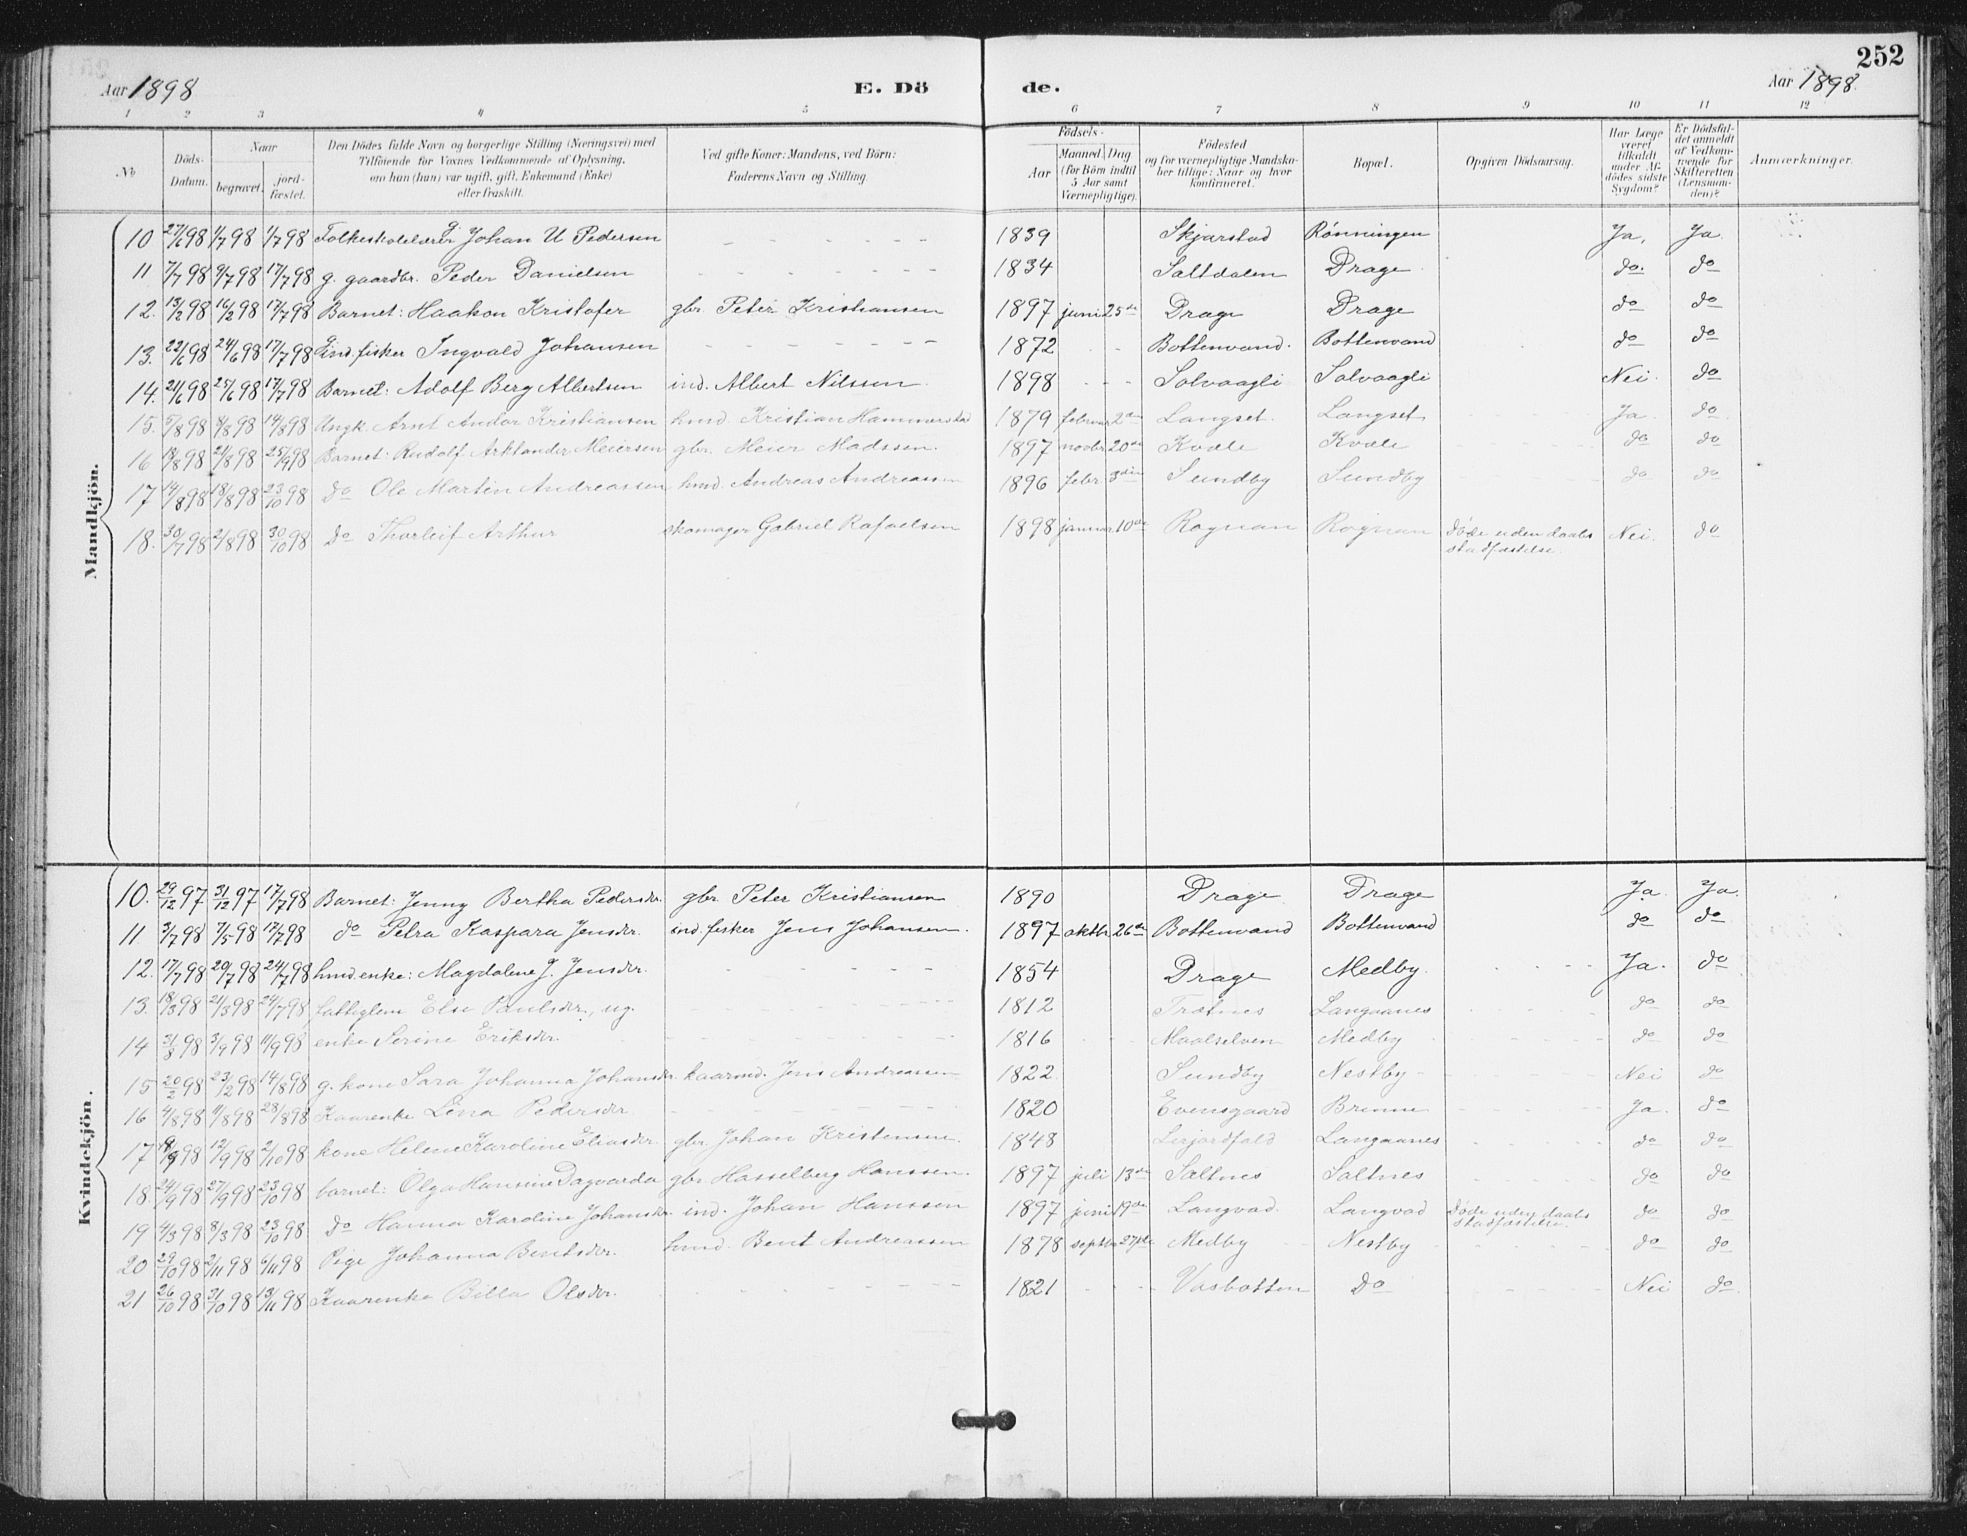 252
Aar 1898
E. Dö
de.
Aar 1898.
1 2 3 4 5 6 7 8 9 10 11 12
No
Döds-Datum.
Naar
begravet.
jord-fæstet.
Den Dödes fulde Navn og borgerlige Stilling (Næringsvei) med
Tilföiende for Voxnes Vedkommende af Oplysning,
om han (hun) var ugift, gift, Enkemand (Enke)
eller fraskilt.
Ved gifte Koner: Mandens, ved Börn:
Faderens Navn og Stilling.
Födsels-
Aar
Maaned Dag
(for Börn indtil
5 Aar samt
Værnepligtige).
Födested
og for værnepligtige Mandska-
ber tillige: Naar og hvor
konfirmeret.
Bopæl.
Opgiven Dödsaarsag.
Har Læge
været
tilkaldt
under Af-
dödes sidste
Sygdom?
Er Dödsfal-
det anmeldt
af Vedkom-
mende for
Skifteretten
(Lensman-
den)?
Anmærkninger.
Mandkjön.
10 27/6 98 1/7 98 1/7 98 Folkeskolelærer g. Johan U Pedersen - - - - - - 1839 Skjærstad Rönningen Ja. Ja.
11 7/7 98 9/7 98 17/7 98 g. gaardbr. Peder Danielsen - - - - - - 1834 Saltdalen Drage do. do
12. 13/2 98 16/2 98 17/7 98 Barnet: Haakon Kristofer gbr. Peter Kristiansen 1897 juni 25de Drage Drage do do
13. 22/6 98 24/6 98 17/7 98 g ind. fisker Ingvald Johansen - - - - - - 1872 - - Bottenvand. Bottenvand do do
14. 21/6 98 25/6 98 17/7 98 Barnet: Adolf Berg Albertsen ind. Albert Nilssen. 1898 - - - Solvaagli Solvaagli Nei. do
15. 5/8 98 8/8 98 14/8 98 Ungk. Arnt Andor Kristiansen hmd. Kristian Hammerstad 1879 februar 2den Langset. Langset Ja. do.
16 18/8 98 21/8 98 25/9 98 Barnet: Rudolf Arklander Meiersen gbr. Meier Madssen. 1897 novbr. 20de Kvæle Kvæle do do
17 14/8 98 18/8 98 23/10 98 do Ole Martin Andreassen hmd. Andreas Andreassen 1896 febr. 3die Sundby Sundby do do
18. 30/7 98 2/8 98 30/10 98 do Thorleif Arthur skomager Gabriel Rafaelsen 1898 januar 10de Rognan Rognan Döde uden daabs Nei. do
stadfæstelse.
Kvindekjön.
10. 29/12 97 31/12 97 17/7 98 Barnet: Jenny Bertha Pedersdr. gbr. Peter Kristiansen 1890 Drage Drage Ja. Ja.
11 3/7 98 7/5 98 17/7 98 do Petra Kaspara Jensdr. ind. fisker Jens Johansen. 1897 oktbr. 26de Bottenvand Bottenvand do do
12. 17/7 98 20/7 98 24/7 98 hmd. enke: Magdalene J. Jensdr. - - - - - - 1854 Drage Medby. Ja. do
13. 18/3 98 21/3 98 24/7 98 Else Paulsdr., ug. - - - - - - 1812 Langaanes do do
14 31/8 98 3/9 98 11/9 98 enke Serine Eriksdr. - - - - - - 1816 Maalselven Medby do do
15 20/2 98 23/2 98 14/8 98 g. kone Sara Johanna Johansdr. kaarmd. Jens Andreassen 1822 Sundby Nestby Nei do
16 4/8 98 11/8 98 28/8 98 Kaarenke Lina Pedersdr - - - - - - 1820 Evensgaard Brenne Ja. do
17 8/9 98 12/9 98 2/10 98 kone Helene Karoline Eliasdr. gbr. Johan Kristensen. 1848 Leijordfald Langaanes do do
18. 24/9 98 27/9 98 23/10 98 barnet: Olga Hansine Dagvarda gbr. Hasselberg Hanssen. 1897 juli 13de Saltnes Saltnes do do
19 4/3 98 8/3 98 23/10 98 do Hanna Karoline Johansdr. ind. Johan Hanssen 1897 juni 19de Langvad. Langvad Döde uden daabs do do
stadfæstelse.
20 29/10 98 2/11 98 6/11 98 Pige Johanna Bentsdr. hmd. Bent Andreassen 1878 septbr. 27de Medby Nestby do do
21 26/10 98 31/10 98 13/11 98 Kaarenke Billa Olsdr. - - - - - - 1821 - - - Vasbotten do Nei do.